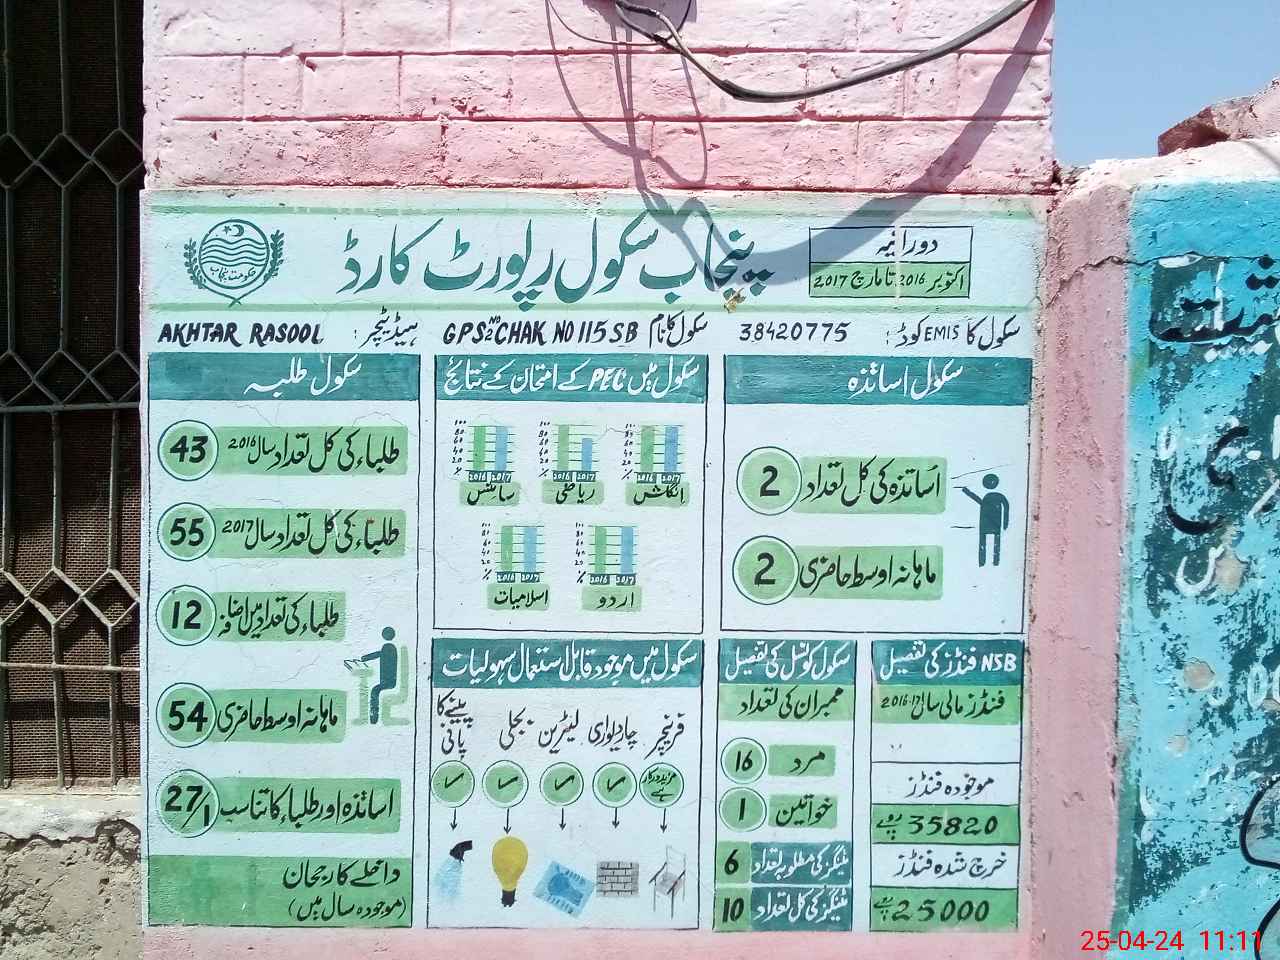 پنجاب سکول رپورٹ کارڈ
حکومت پنجاب
دورانیہ
اکتوبر 2016 تا مارچ 2017
سکول کا EMIS کوڈ: 38420775
سکول کا نام GPS NO2 CHAK NO 115 SB
ہیڈ ٹیچر: AKHTAR RASOOL
سکول اساتذہ
اساتذہ کی کل تعداد 2
ماہانہ اوسط حاضری 2
سکول میں PEC کے امتحان کے نتائج
انگلش
ریاضی
سائنس
اردو
اسلامیات
100
80
60
40
20
%
2016 2017
سکول طلبہ
طلباء کی کل تعداد سال 2016 43
طلباء کی کل تعداد سال 2017 55
طلباء کی تعداد میں اضافہ 12
ماہانہ اوسط حاضری 54
اساتذہ اور طلباء کا تناسب 27/1
داخلے کا رجحان
(موجودہ سال میں)
سکول میں موجود قابل استعمال سہولیات
فرنیچر
چاردیواری
لیٹرین
بجلی
پینے کا پانی
مزید درکار ہے
سکول کونسل کی تفصیل
ممبران کی تعداد
مرد 16
خواتین 1
میٹنگز کی مطلوبہ تعداد 6
میٹنگز کی کل تعداد 10
NSB فنڈز کی تفصیل
فنڈز مالی سال 2016-17
موجودہ فنڈز
35820 روپے
خرچ شدہ فنڈز
25000 روپے
25-04-24 11:11